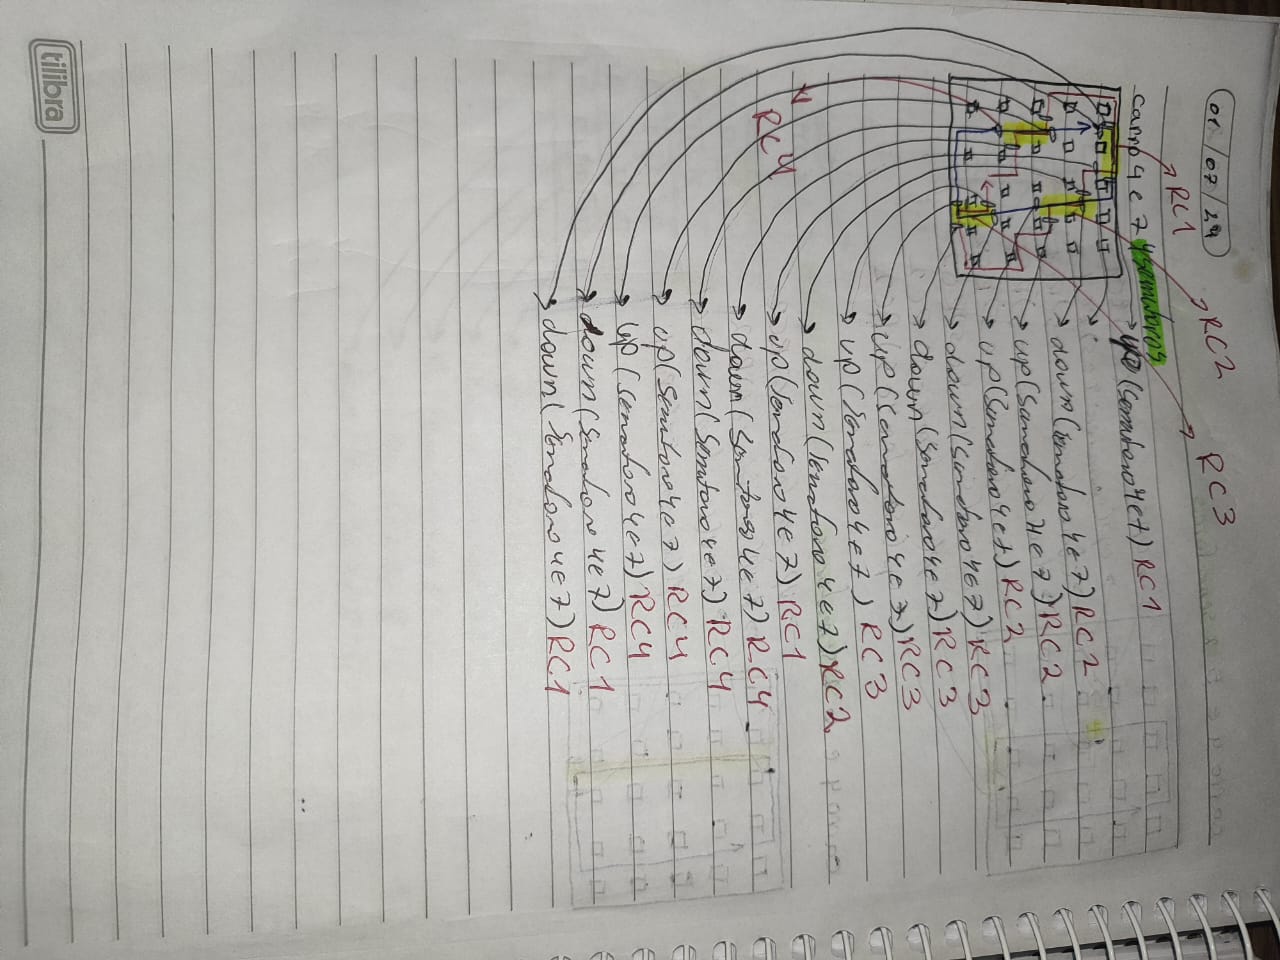 01 / 07 / 24
RC1
RC2
RC3
carro 4 e 7 4 semaforos
up (semaforo 4 e 7) RC1
down (semaforo 4 e 7) RC2
up (semaforo 4 e 7) RC2
up (semaforo 4 e 7) RC2
down (semaforo 4 e 7) RC3
down (semaforo 4 e 7) RC3
up (semaforo 4 e 7) RC3
up (semaforo 4 e 7) RC3
down (semaforo 4 e 7) RC2
up (semaforo 4 e 7) RC1
RC4
down (semaforo 4 e 7) RC4
down (semaforo 4 e 7) RC4
up (semaforo 4 e 7) RC4
up (semaforo 4 e 7) RC4
down (semaforo 4 e 7) RC1
down (semaforo 4 e 7) RC1
tilibra